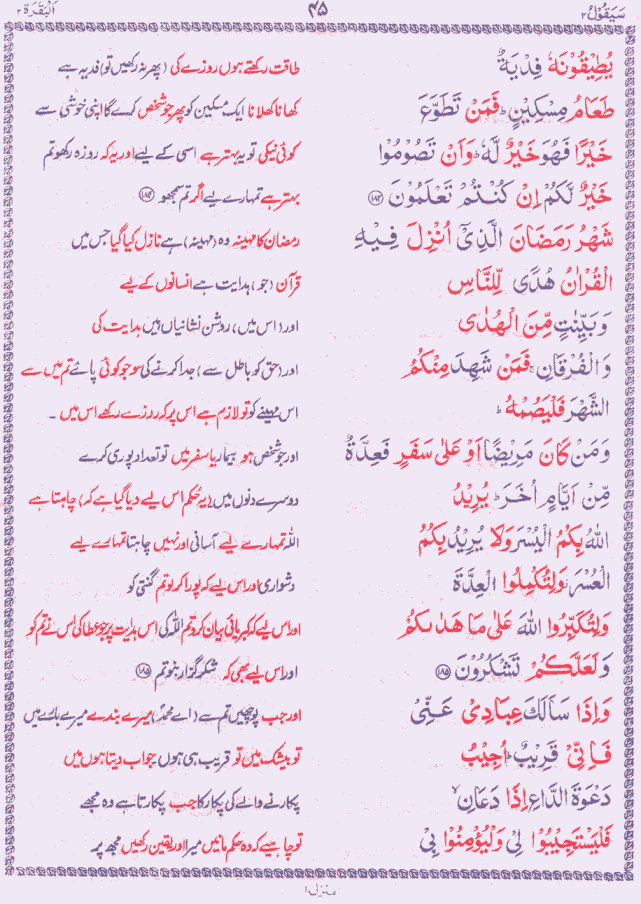 سَيَقُوْلُ ٢ ٤٥ اَلْبَقَرَة ٢
يُطِيْقُوْنَهٗ فِدْيَةٌ طاقت رکھتے ہوں روزے کی (پھر نہ رکھیں تو) فدیہ ہے
طَعَامُ مِسْكِيْنٍ ؕ فَمَنْ تَطَوَّعَ کھانا کھلانا ایک مسکین کو پھر جو شخص کرے گا اپنی خوشی سے
خَيْرًا فَهُوَ خَيْرٌ لَّهٗ ؕ وَاَنْ تَصُوْمُوْا کوئی نیکی تو یہ بہتر ہے اسی کے لیے اور یہ کہ روزہ رکھو تم
خَيْرٌ لَّكُمْ اِنْ كُنْتُمْ تَعْلَمُوْنَ ﴿١٨٤﴾ بہتر ہے تمہارے لیے اگر تم سمجھو ﴿١٨٤﴾
شَهْرُ رَمَضَانَ الَّذِيْٓ اُنْزِلَ فِيْهِ رمضان کا مہینہ وہ (مہینہ) ہے نازل کیا گیا جس میں
الْقُرْاٰنُ هُدًى لِّلنَّاسِ قرآن (جو) ہدایت ہے انسانوں کے لیے
وَبَيِّنٰتٍ مِّنَ الْهُدٰى اور (اس میں) روشن نشانیاں ہیں ہدایت کی
وَالْفُرْقَانِ ۚ فَمَنْ شَهِدَ مِنْكُمُ اور (حق کو باطل سے) جدا کرنے کی سو جو کوئی پائے تم میں سے
الشَّهْرَ فَلْيَصُمْهُ ؕ اس مہینے کو تو لازم ہے اس پر کہ روزے رکھے اس میں۔
وَمَنْ كَانَ مَرِيْضًا اَوْ عَلٰى سَفَرٍ فَعِدَّةٌ اور جو شخص ہو بیمار یا سفر میں تو تعداد پوری کرے
مِّنْ اَيَّامٍ اُخَرَ ؕ يُرِيْدُ دوسرے دنوں میں (یہ حکم اس لیے دیا گیا ہے کہ) چاہتا ہے
اللّٰهُ بِكُمُ الْيُسْرَ وَلَا يُرِيْدُ بِكُمُ اللہ تمہارے لیے آسانی اور نہیں چاہتا تمہارے لیے
الْعُسْرَ ۫ وَلِتُكْمِلُوا الْعِدَّةَ دشواری اور اس لیے کہ پورا کر لو تم گنتی کو
وَلِتُكَبِّرُوا اللّٰهَ عَلٰى مَا هَدٰىكُمْ اور اس لیے کہ کبریائی بیان کرو تم اللہ کی اس ہدایت پر جو عطا کی اس نے تم کو
وَلَعَلَّكُمْ تَشْكُرُوْنَ ﴿١٨٥﴾ اور اس لیے بھی کہ شکر گزار بنو تم ﴿١٨٥﴾
وَاِذَا سَاَلَكَ عِبَادِيْ عَنِّيْ اور جب پوچھیں تم سے (اے محمدؐ) میرے بندے میرے بارے میں
فَاِنِّيْ قَرِيْبٌ ؕ اُجِيْبُ تو بیشک میں تو قریب ہی ہوں جواب دیتا ہوں میں
دَعْوَةَ الدَّاعِ اِذَا دَعَانِ ۙ پکارنے والے کی پکار کا جب پکارتا ہے وہ مجھے
فَلْيَسْتَجِيْبُوْا لِيْ وَلْيُؤْمِنُوْا بِيْ تو چاہیے کہ وہ حکم مانیں میرا اور یقین رکھیں مجھ پر
منزل ١